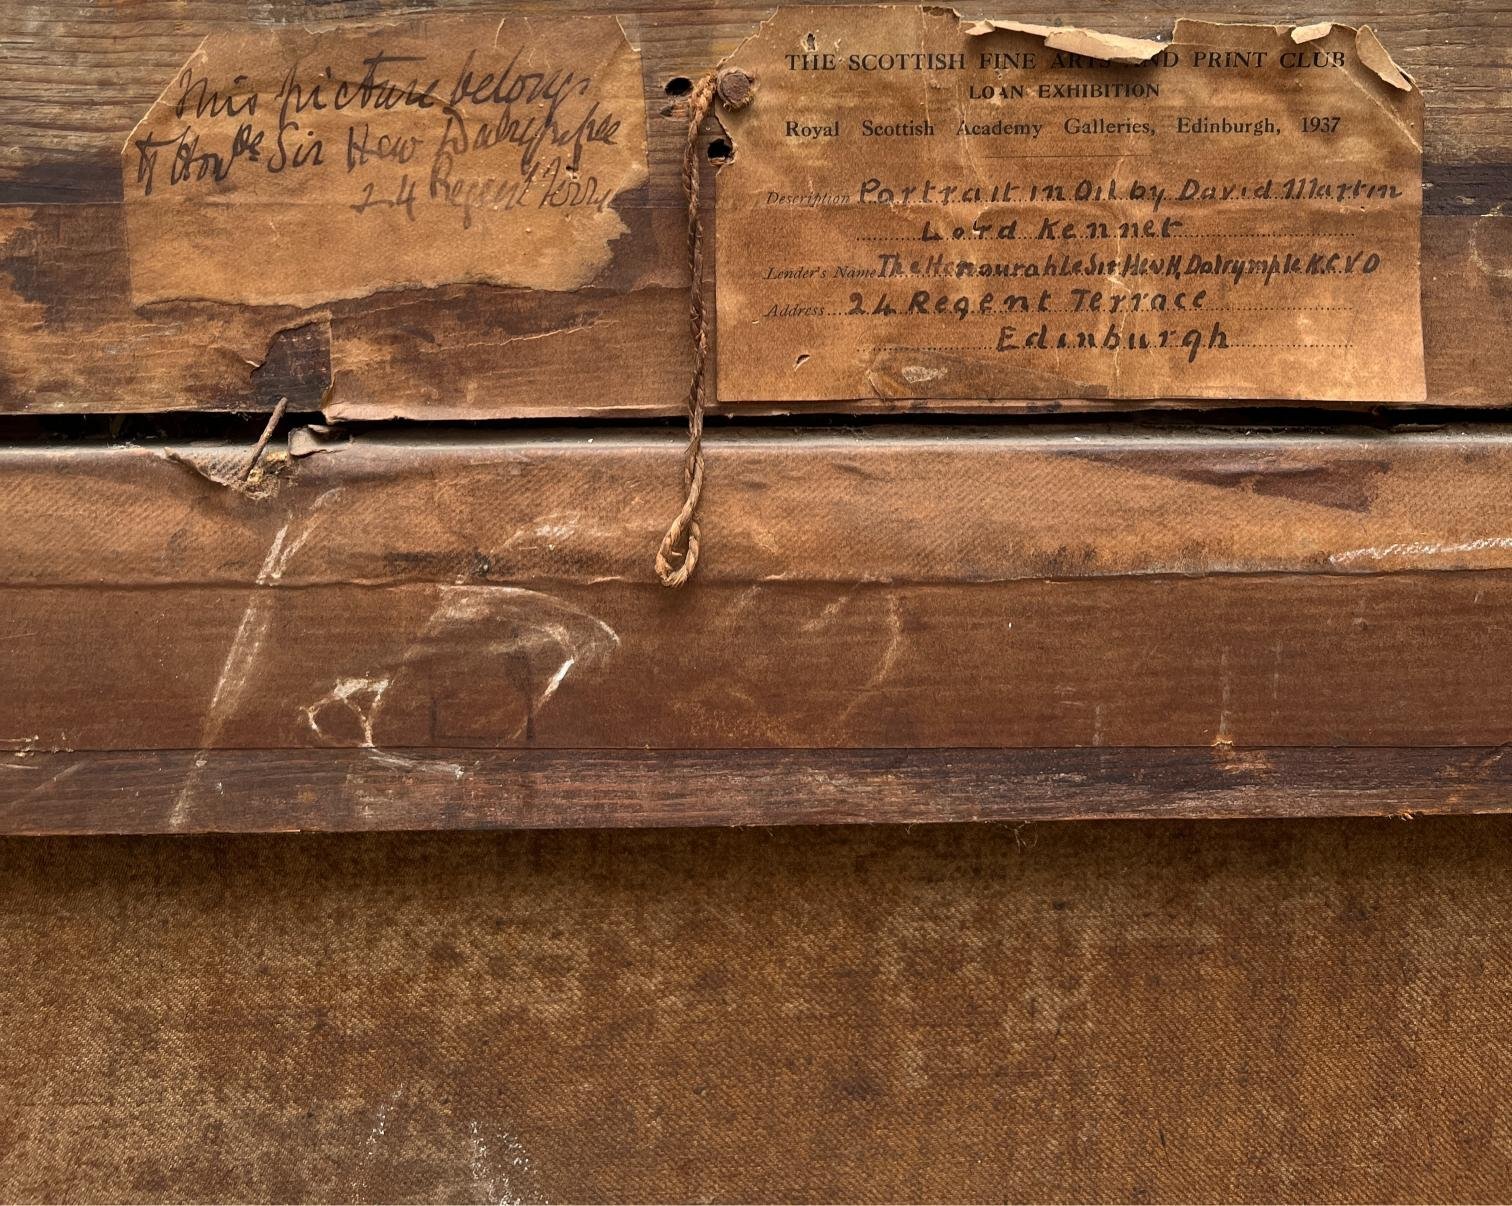 This picture belongs
to Honble Sir Hew Dalrymple
24 Regent Terrace
THE SCOTTISH FINE ARTS AND PRINT CLUB
LOAN EXHIBITION
Royal Scottish Academy Galleries, Edinburgh, 1937
Description Portrait in Oil by David Martin
Lord Kennet
Lender's Name The Honourable Sir Hew H. Dalrymple K.C.V.O
Address 24 Regent Terrace
Edinburgh